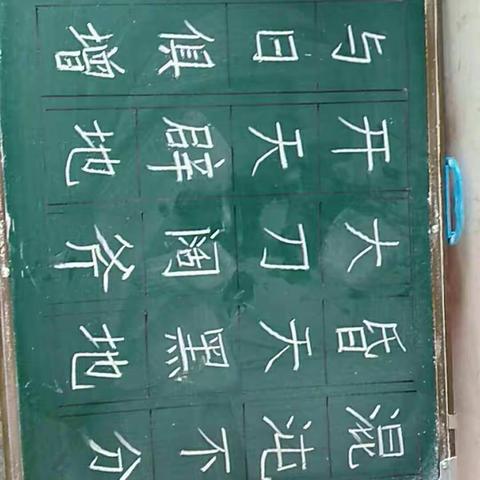 混沌不分
昏天黑地
大刀阔斧
开天辟地
与日俱增